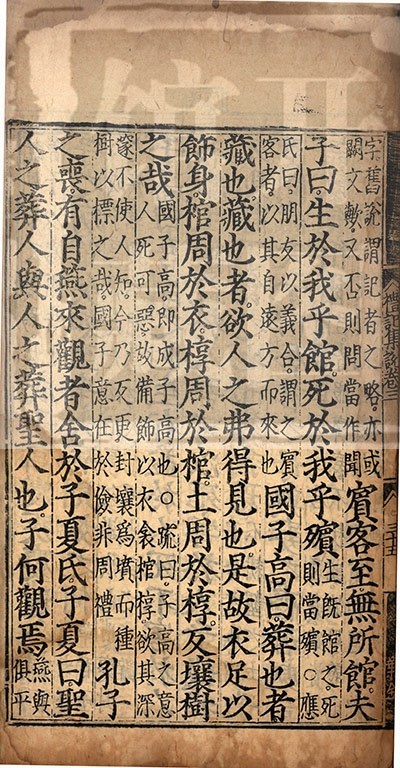 字舊說謂記者之略亦或
闕文歟又否則問當作聞
賓客至無所館。夫
子曰。生於我乎館。死於我乎殯
生既館之。死
則當殯。○應
氏曰。朋友以義合。謂之賓
客者。以其自遠方而來也
國子高曰。葬也者
藏也。藏也者。欲人之弗得見也。是故衣足以
飾身。棺周於衣。椁周於棺。土周於椁。反壤樹
之哉
國子高。即成子高也。○疏曰。子高之意
人死可惡。故備飾以衣衾棺椁。欲其深
邃不使人知。今乃反更封壤爲墳。而種
樹以標之哉。國子意在於儉。非周禮
孔子
之喪。有自燕來觀者。舍於子夏氏。子夏曰。聖
人之葬人與。人之葬聖人也。子何觀焉
燕與
俱平
禮記集說卷三
三十五